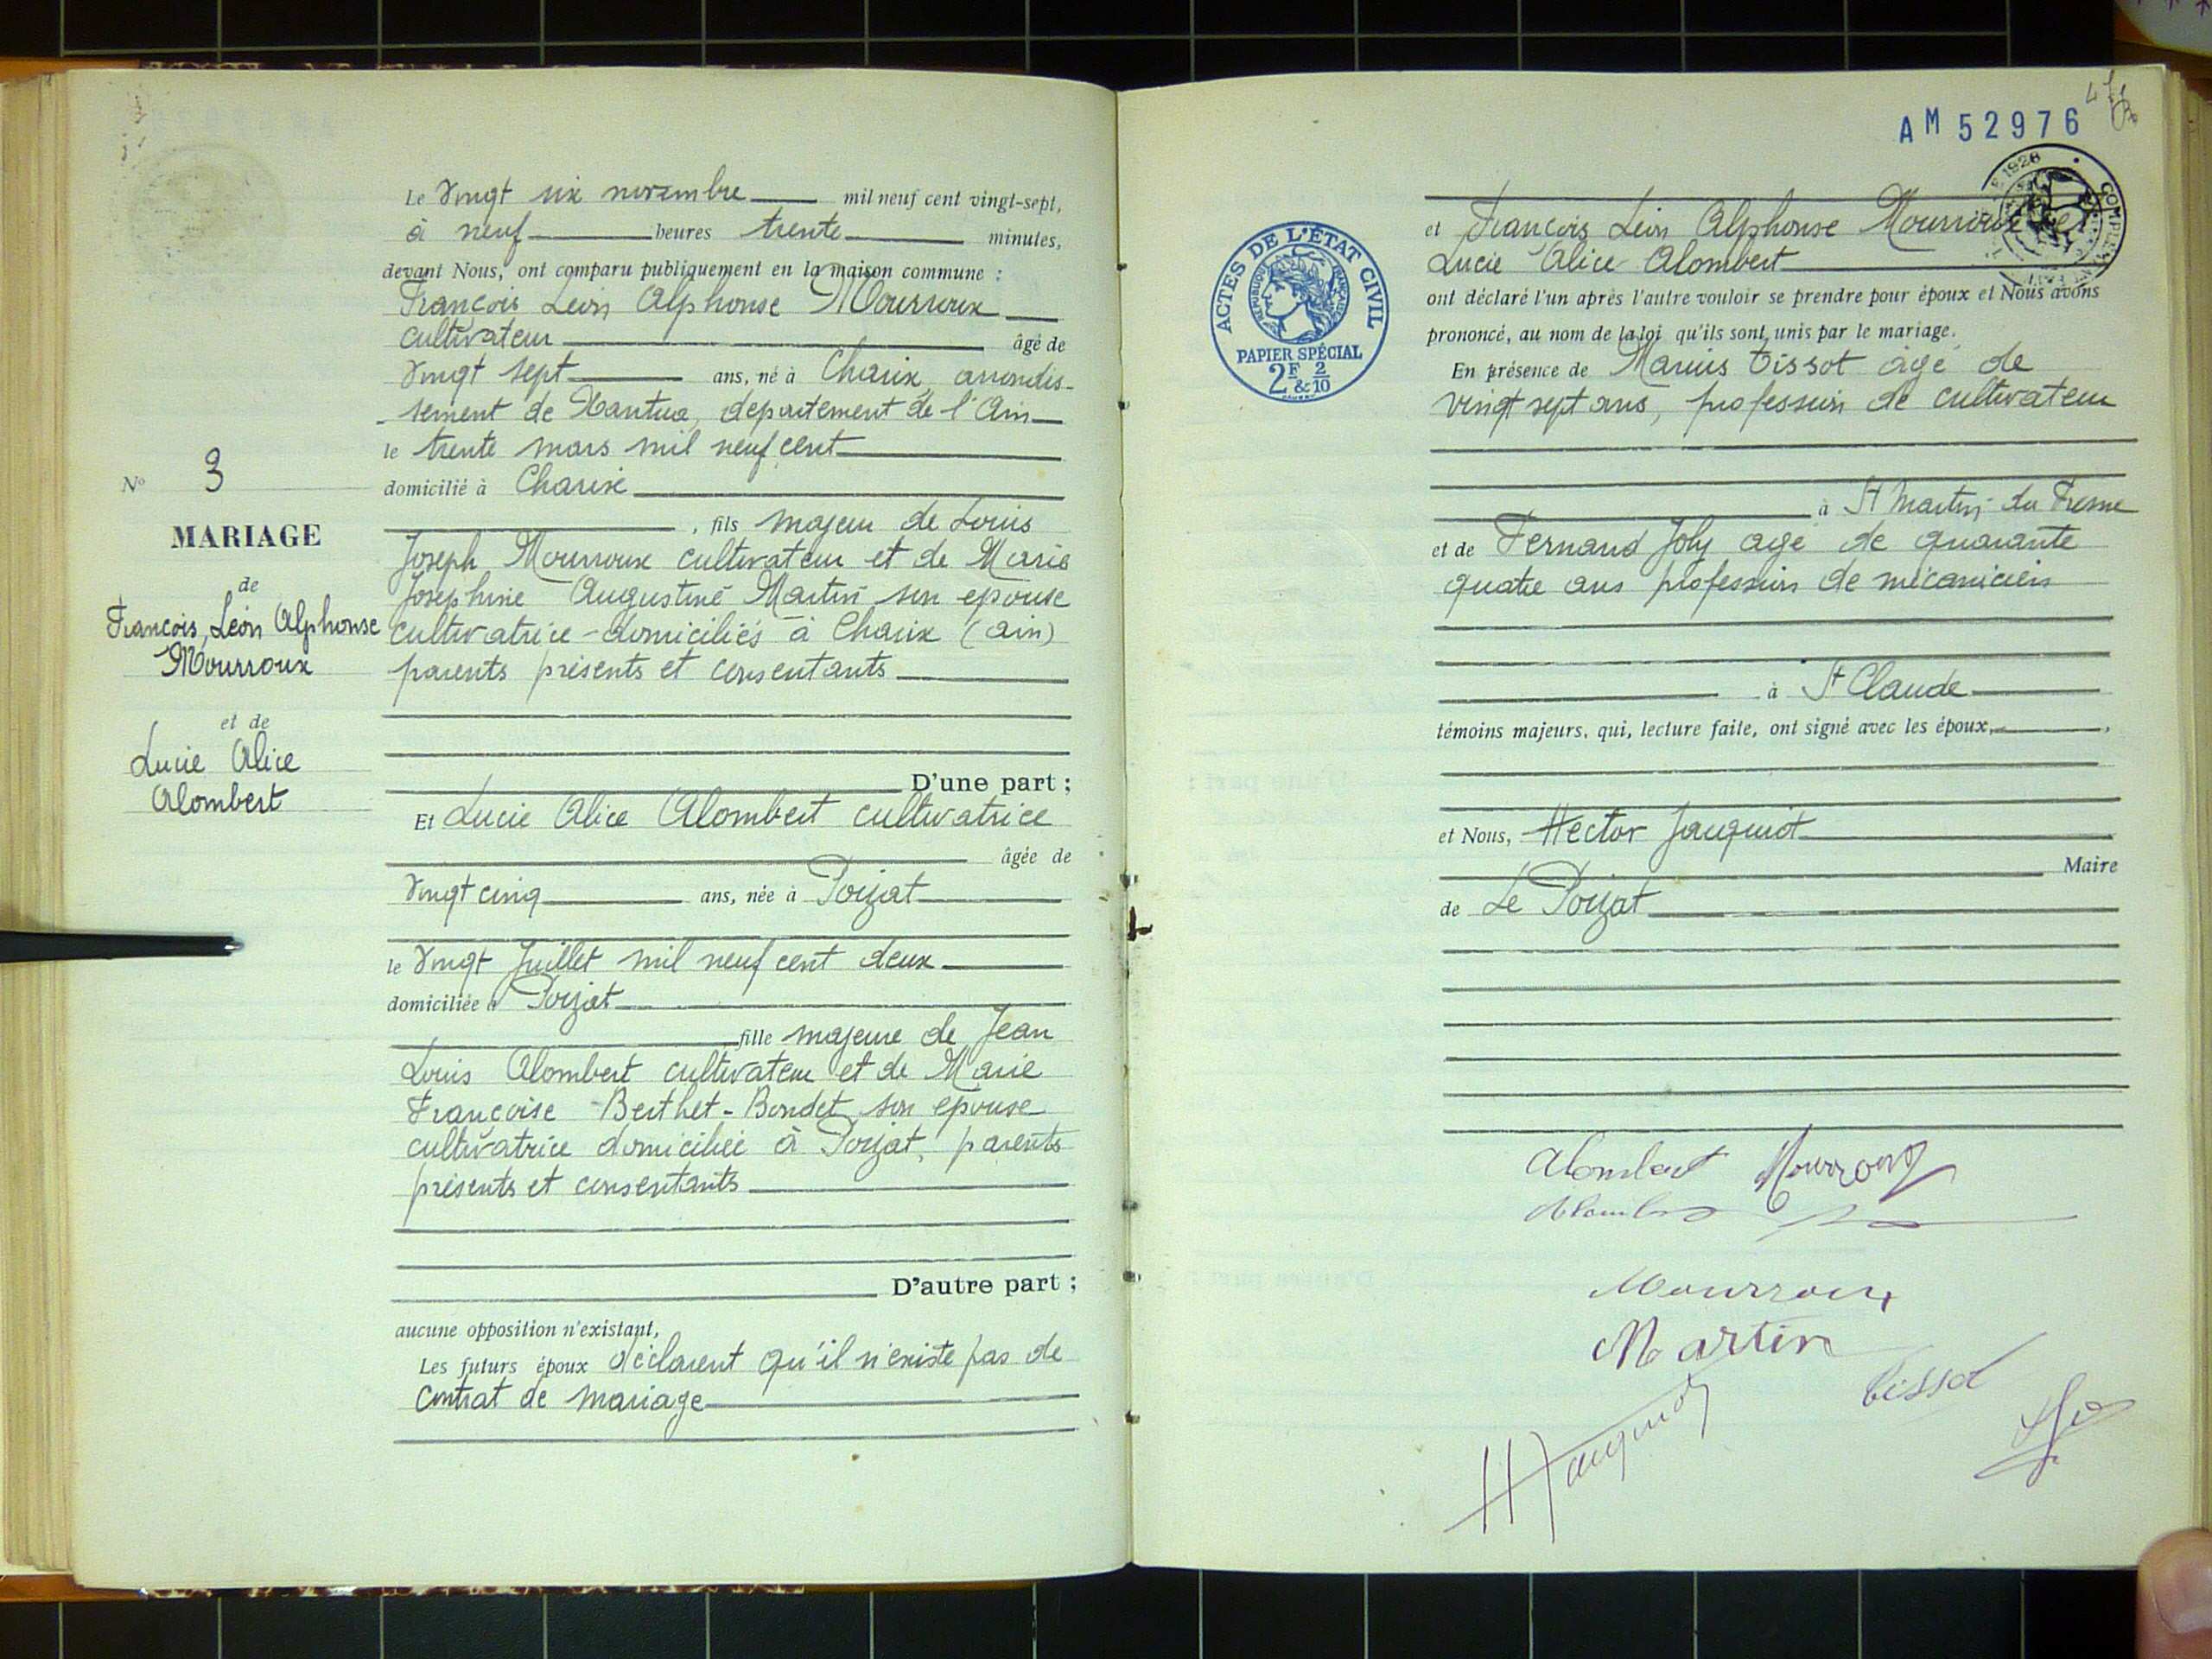 Le Vingt six novembre mil neuf cent vingt-sept,
à neuf heures trente minutes,
devant Nous, ont comparu publiquement en la maison commune :
François Léon Alphonse Mourroux
cultivateur âgé de
Vingt sept ans, né à Charix, arrondis-
-sement de Nantua, département de l'Ain
le trente mars mil neuf cent
domicilié à Charix
, fils majeur de Louis
Joseph Mourroux cultivateur et de Marie
Joséphine Augustine Martin son épouse
cultivatrice - domiciliés à Charix (ain)
parents présents et consentants
D'une part ;
Et Lucie Alice Alombert cultivatrice
âgée de
Vingt cinq ans, née à Poizat
le Vingt Juillet mil neuf cent deux
domiciliée à Poizat
fille majeure de Jean
Louis Alombert cultivateur et de Marie
Françoise Berthet-Bondet son épouse
cultivatrice domiciliée à Poizat, parents
présents et consentants
D'autre part ;
aucune opposition n'existant,
Les futurs époux déclarent qu'il n'existe pas de
contrat de mariage
N° 3
MARIAGE
de
François, Léon Alphonse
Mourroux
et de
Lucie Alice
Alombert
AM 52976
1926
COMPLEM
ACTES DE L'ÉTAT CIVIL
RÉPUBLIQUE FRANÇAISE
PAPIER SPÉCIAL
2F & 2/10
et François Léon Alphonse Mourroux et
Lucie Alice Alombert
ont déclaré l'un après l'autre vouloir se prendre pour époux et Nous avons
prononcé, au nom de la loi qu'ils sont unis par le mariage.
En présence de Marius Tissot âgé de
vingt sept ans, profession de cultivateur
à St Martin-du Fresne
et de Fernand Joly agé de quarante
quatre ans profession de mécanicien
à St Claude
témoins majeurs, qui, lecture faite, ont signé avec les époux,
et Nous, Hector Jauquiot
Maire
de Le Poizat
Alombert Mourroux
Alombert
Mourroux
Martin
Tissot
H Jauquiot